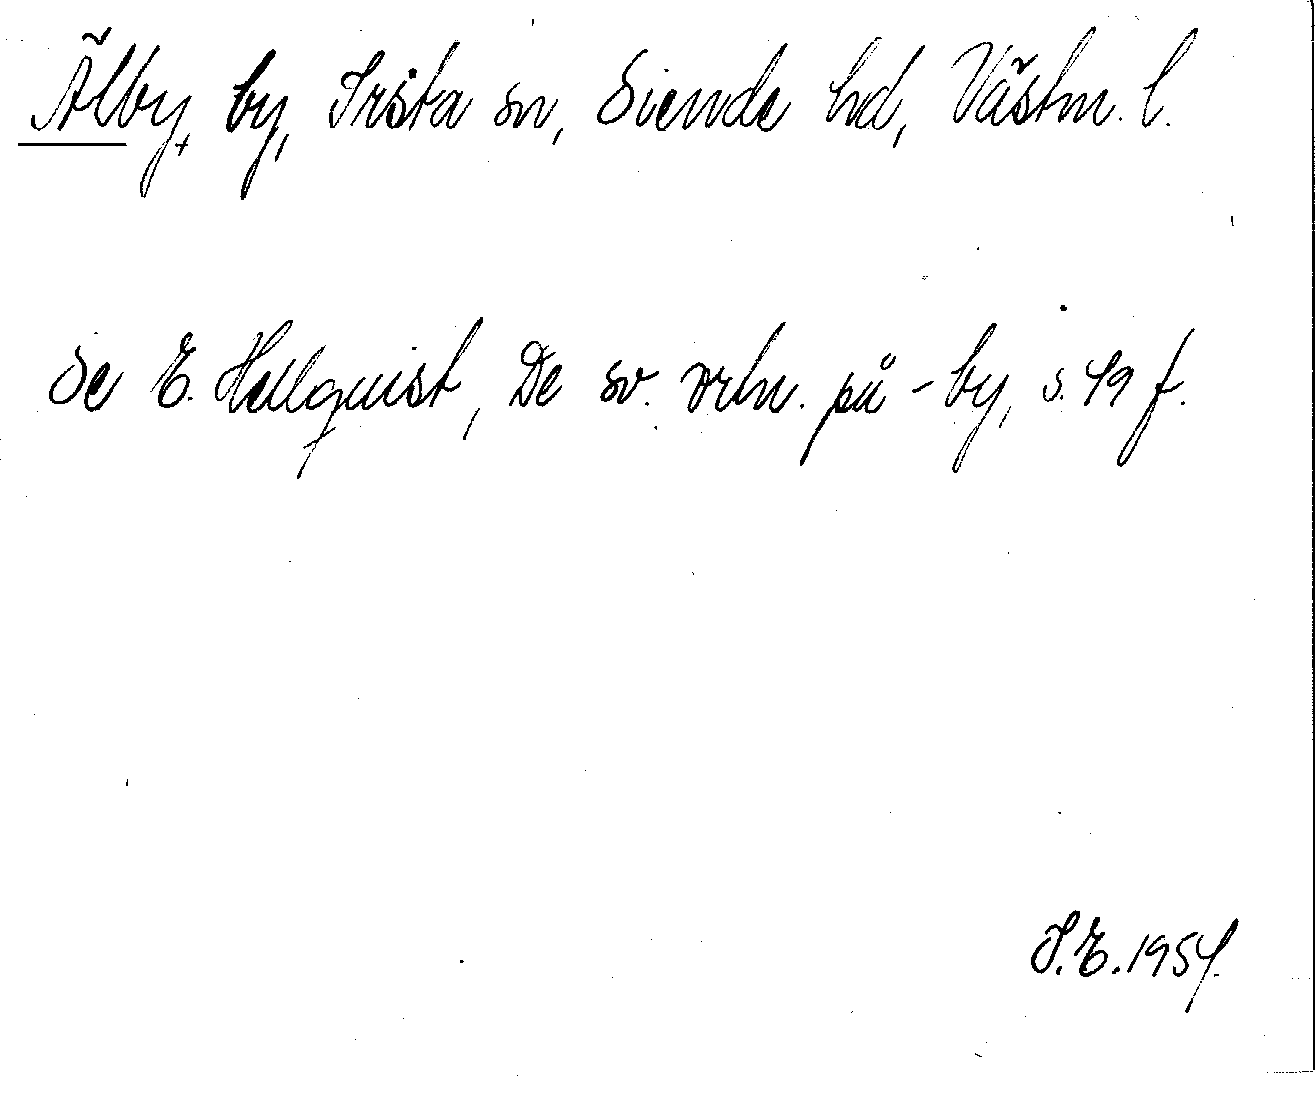 Älby, by, Irsta sn, Siende hd, Västm. l.
Se E. Hellquist, De sv. ortn. på -by, s. 49 f.
I.E. 1954.